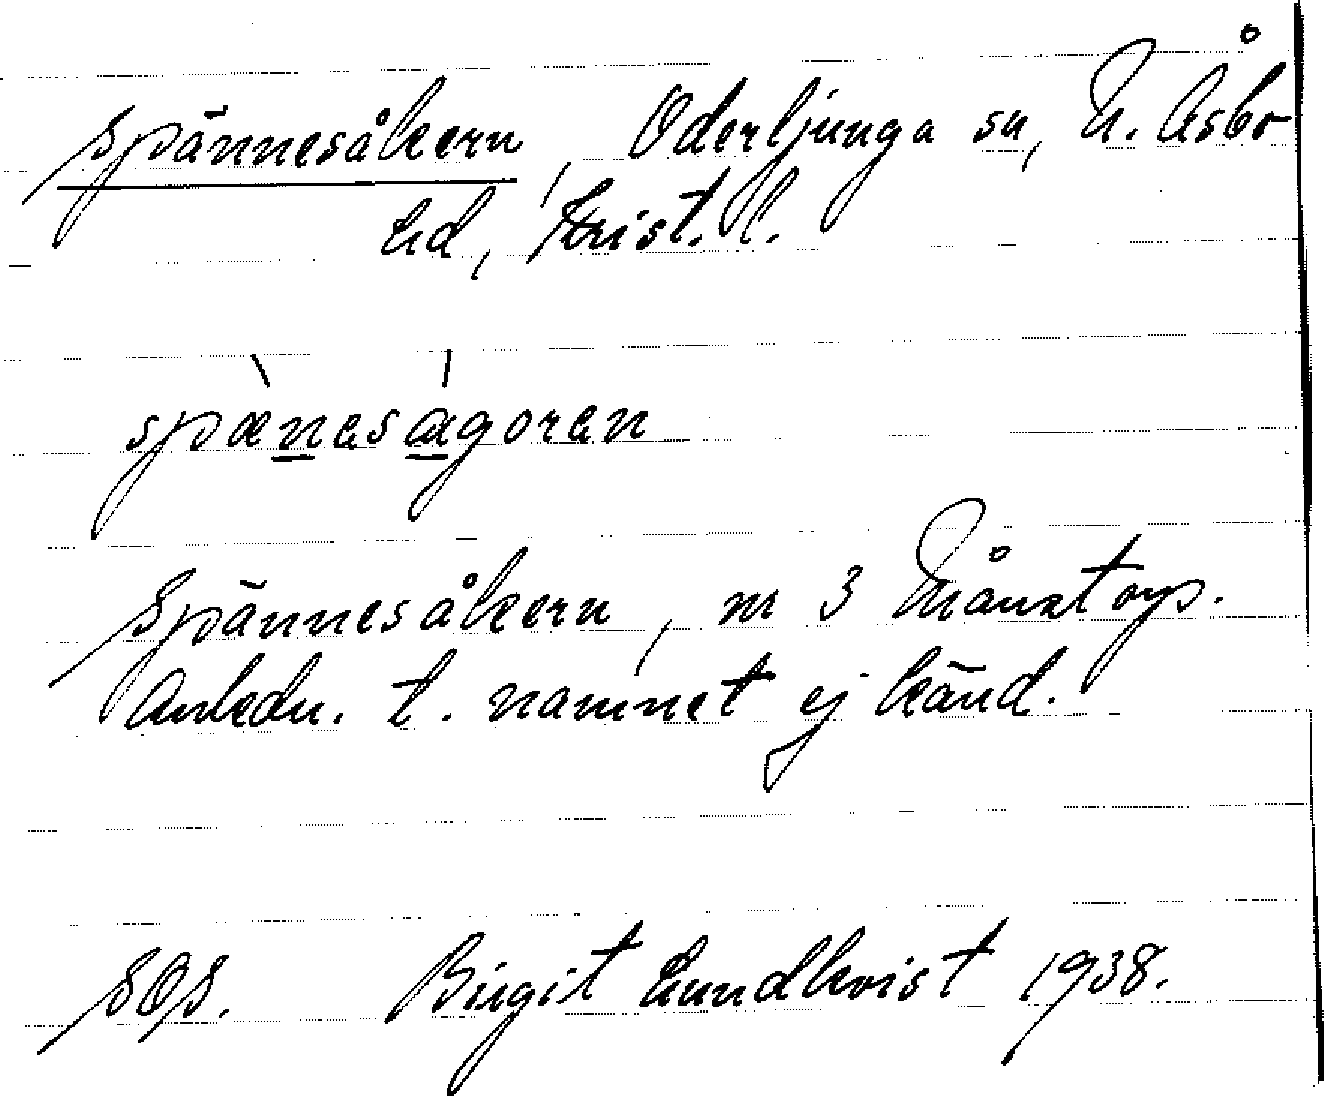 Spännesåkern, Oderljunga sn, N. Åsbo
hd, Krist. l.
spænesågoren
Spännesåkern, nr 3 Månstorp.
Anledn. t. namnet ej känd.
SOS. Birgit Lundkvist 1938.